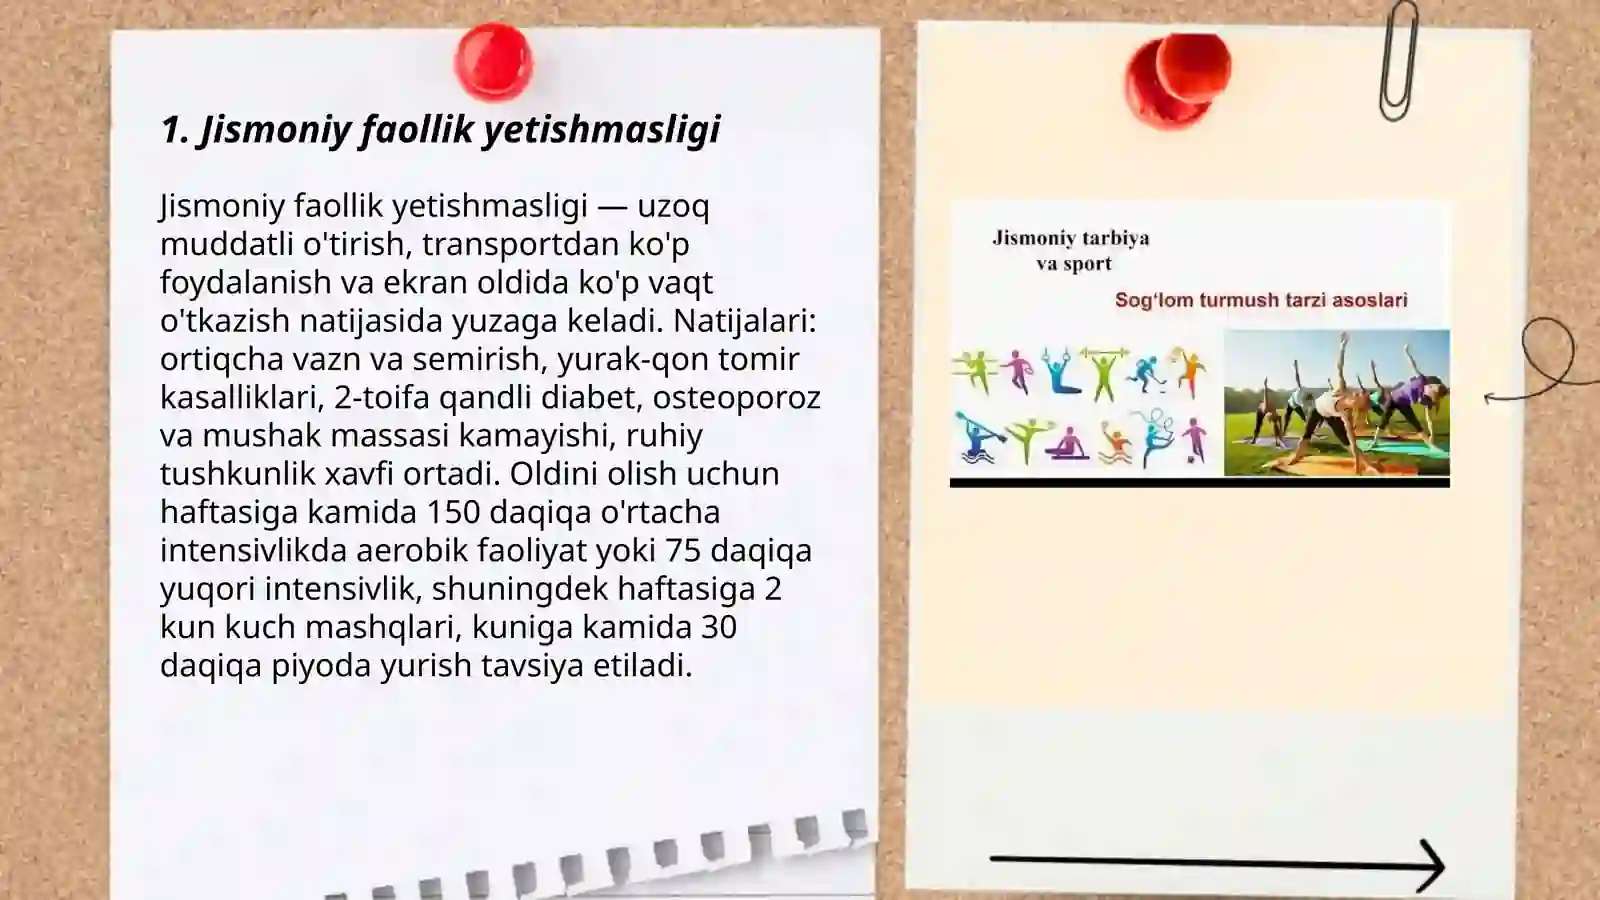 1. Jismoniy faollik yetishmasligi
Jismoniy faollik yetishmasligi — uzoq
muddatli o'tirish, transportdan ko'p
foydalanish va ekran oldida ko'p vaqt
o'tkazish natijasida yuzaga keladi. Natijalari:
ortiqcha vazn va semirish, yurak-qon tomir
kasalliklari, 2-toifa qandli diabet, osteoporoz
va mushak massasi kamayishi, ruhiy
tushkunlik xavfi ortadi. Oldini olish uchun
haftasiga kamida 150 daqiqa o'rtacha
intensivlikda aerobik faoliyat yoki 75 daqiqa
yuqori intensivlik, shuningdek haftasiga 2
kun kuch mashqlari, kuniga kamida 30
daqiqa piyoda yurish tavsiya etiladi.
Jismoniy tarbiya
va sport
Sog‘lom turmush tarzi asoslari